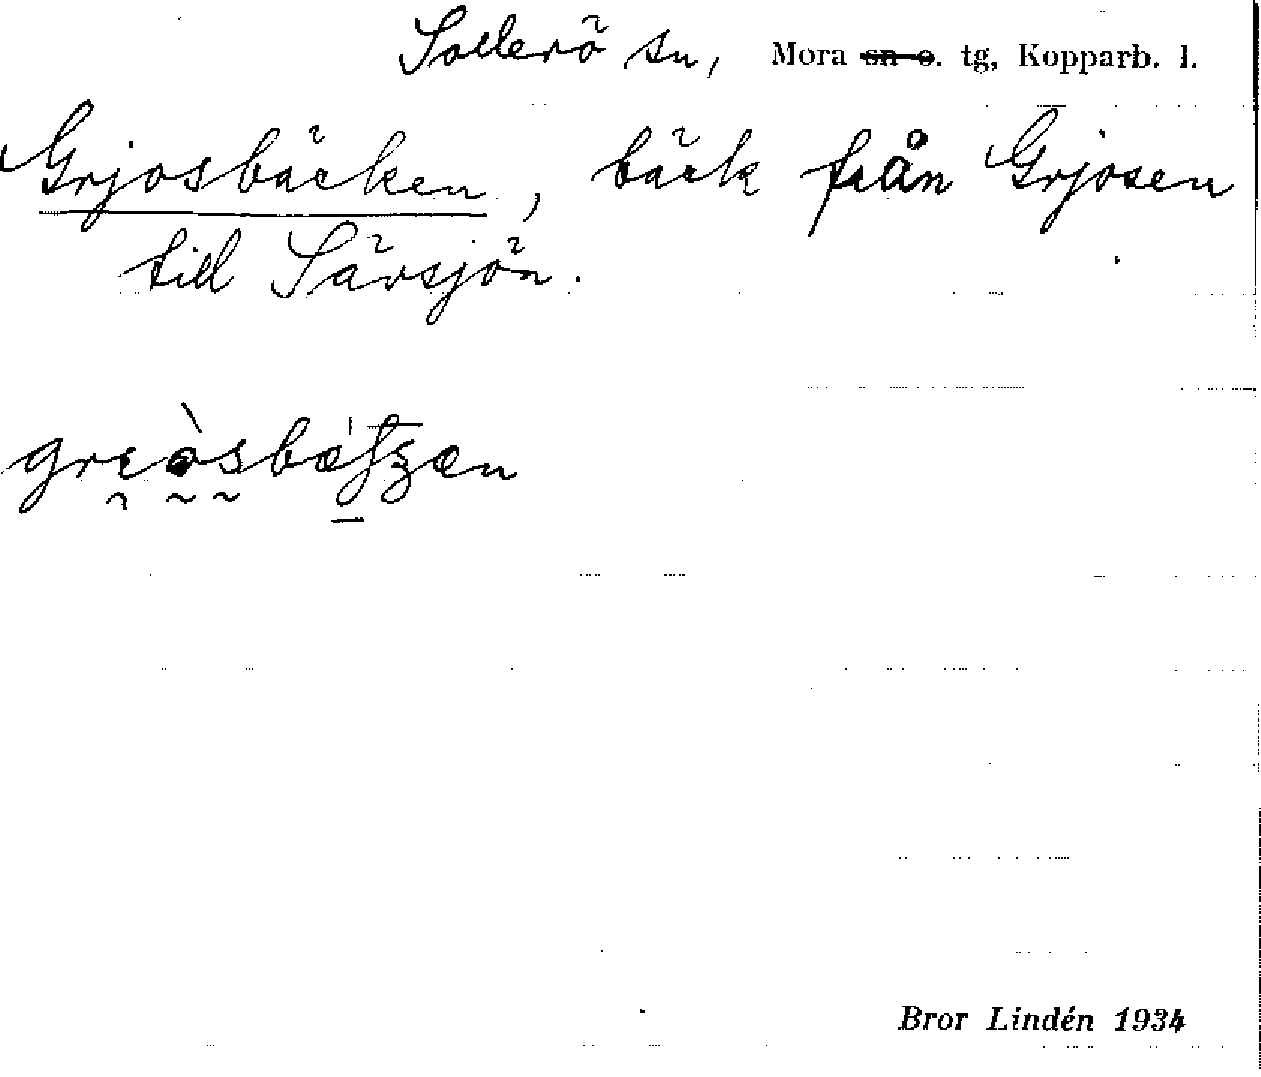 Sollerö sn, Mora sn o. tg, Kopparb. l.
Grjosbäcken, bäck från Grjosen
till Särsjön.
Bror Lindén 1934